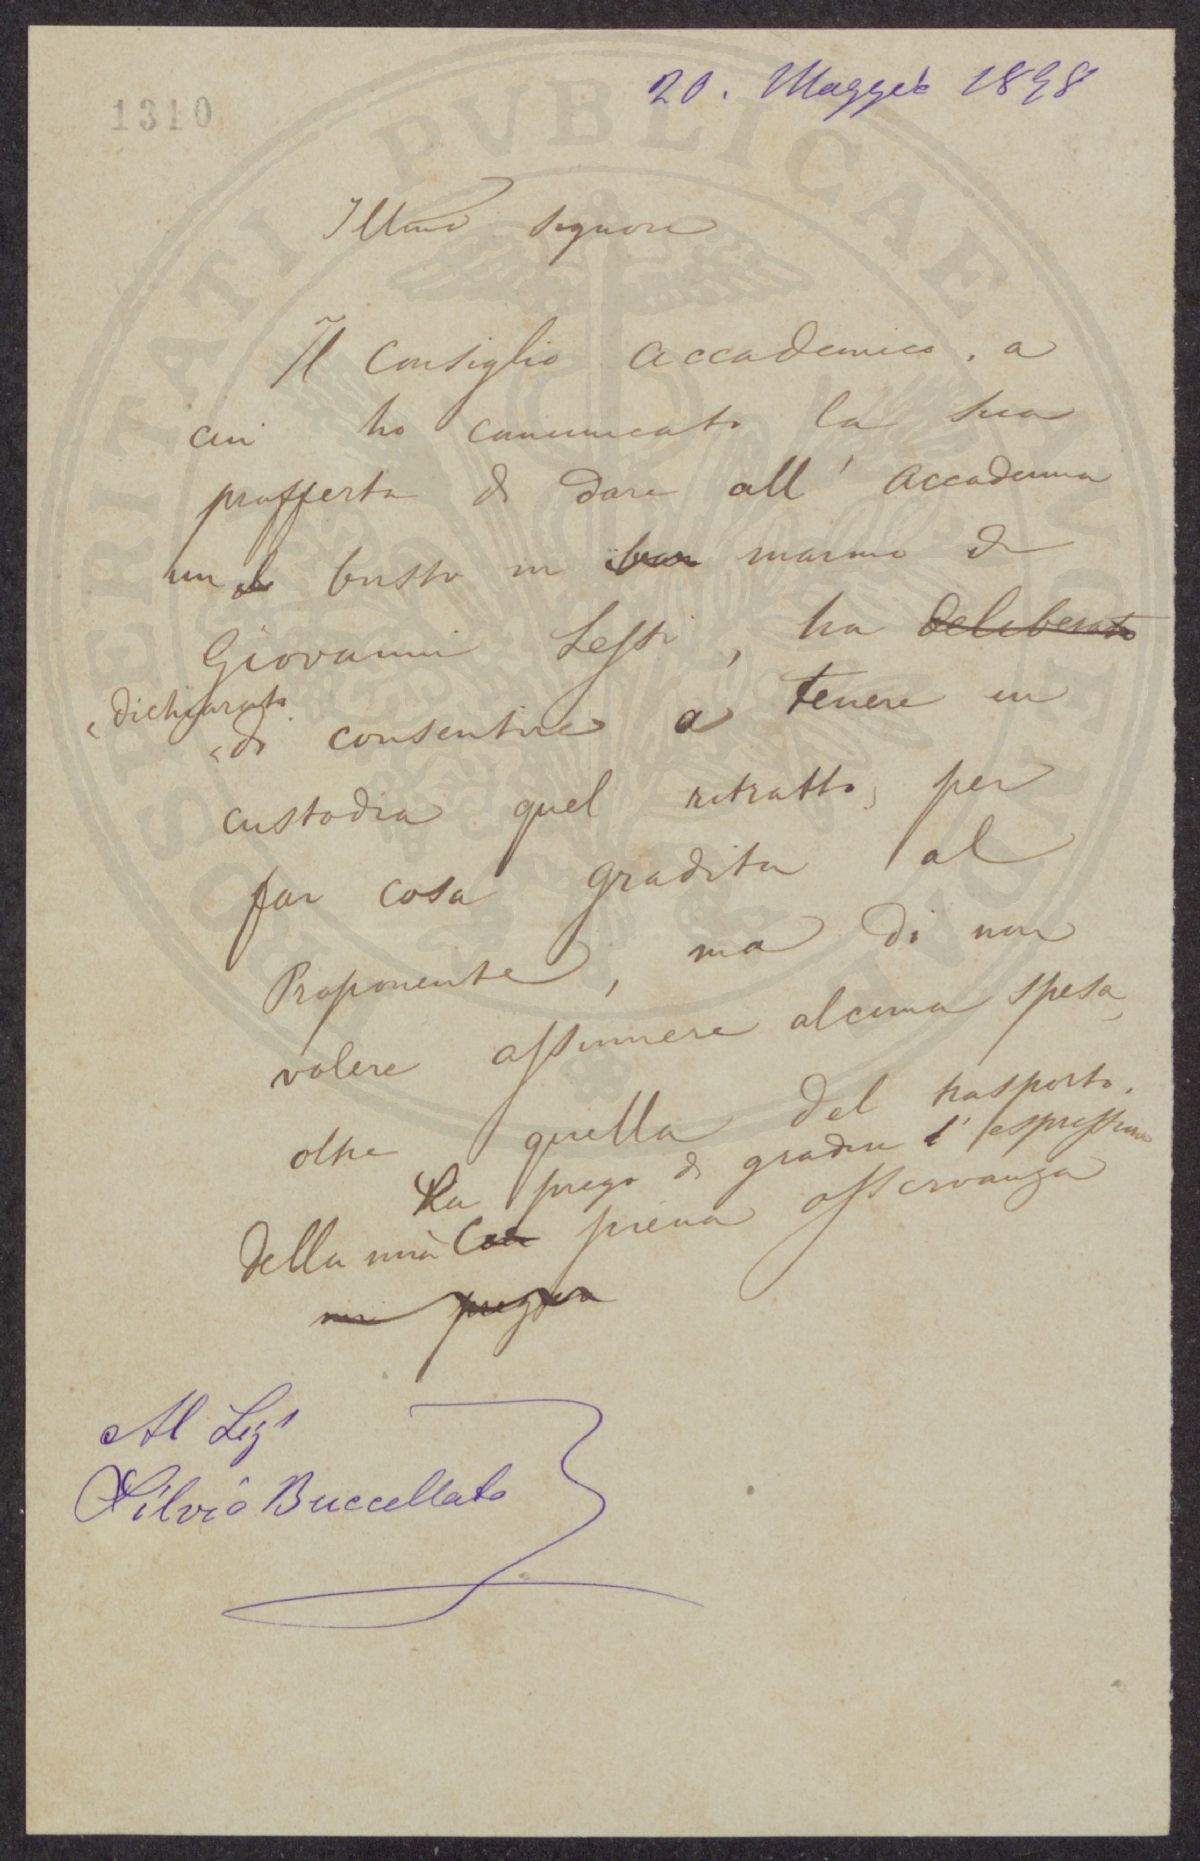 1310
20. Maggio 1898
Illmo Signore
Il Consiglio Accademico, a
cui ho comunicato la sua
profferta di dare all' Accademia
un busto in marmo di
Giovanni Lessi, ha deliberato
dichiarato
di consentire a tenere in
custodia quel ritratto, per
far cosa gradita al
Proponente, ma di non
volere assumere alcuna spesa,
oltre quella del trasporto.
La prego di gradire l' espressione
della mia Con piena osservanza
Al Sigr
Silvio Buccellato
PROSPERITATI PVBLICAE AVGENDAE